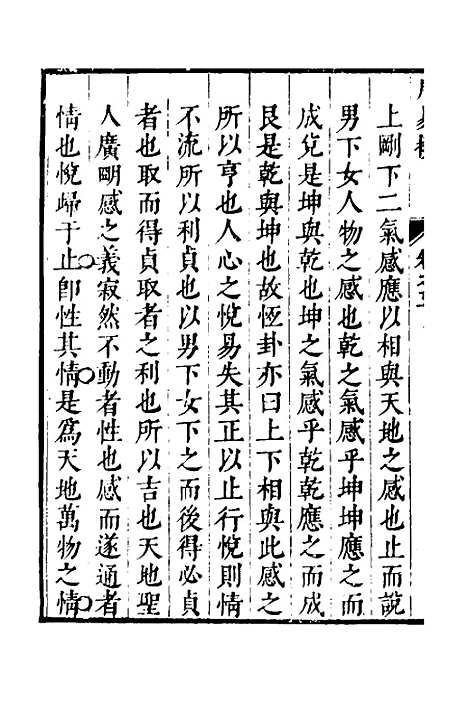 上剛下二氣感應以相與天地之感也止而說
男下女人物之感也乾之氣感乎坤坤應之而
成兌是坤與乾也坤之氣感乎乾乾應之而成
艮是乾與坤也故恆卦亦曰上下相與此感之
所以亨也人心之悅易失其正以止行悅則情
不流所以利貞也以男下女下之而後得必貞
者也取而得貞取者之利也所以吉也天地聖
人廣明感之義寂然不動者性也感而遂通者
情也悅歸于止卽性其情是爲天地萬物之情